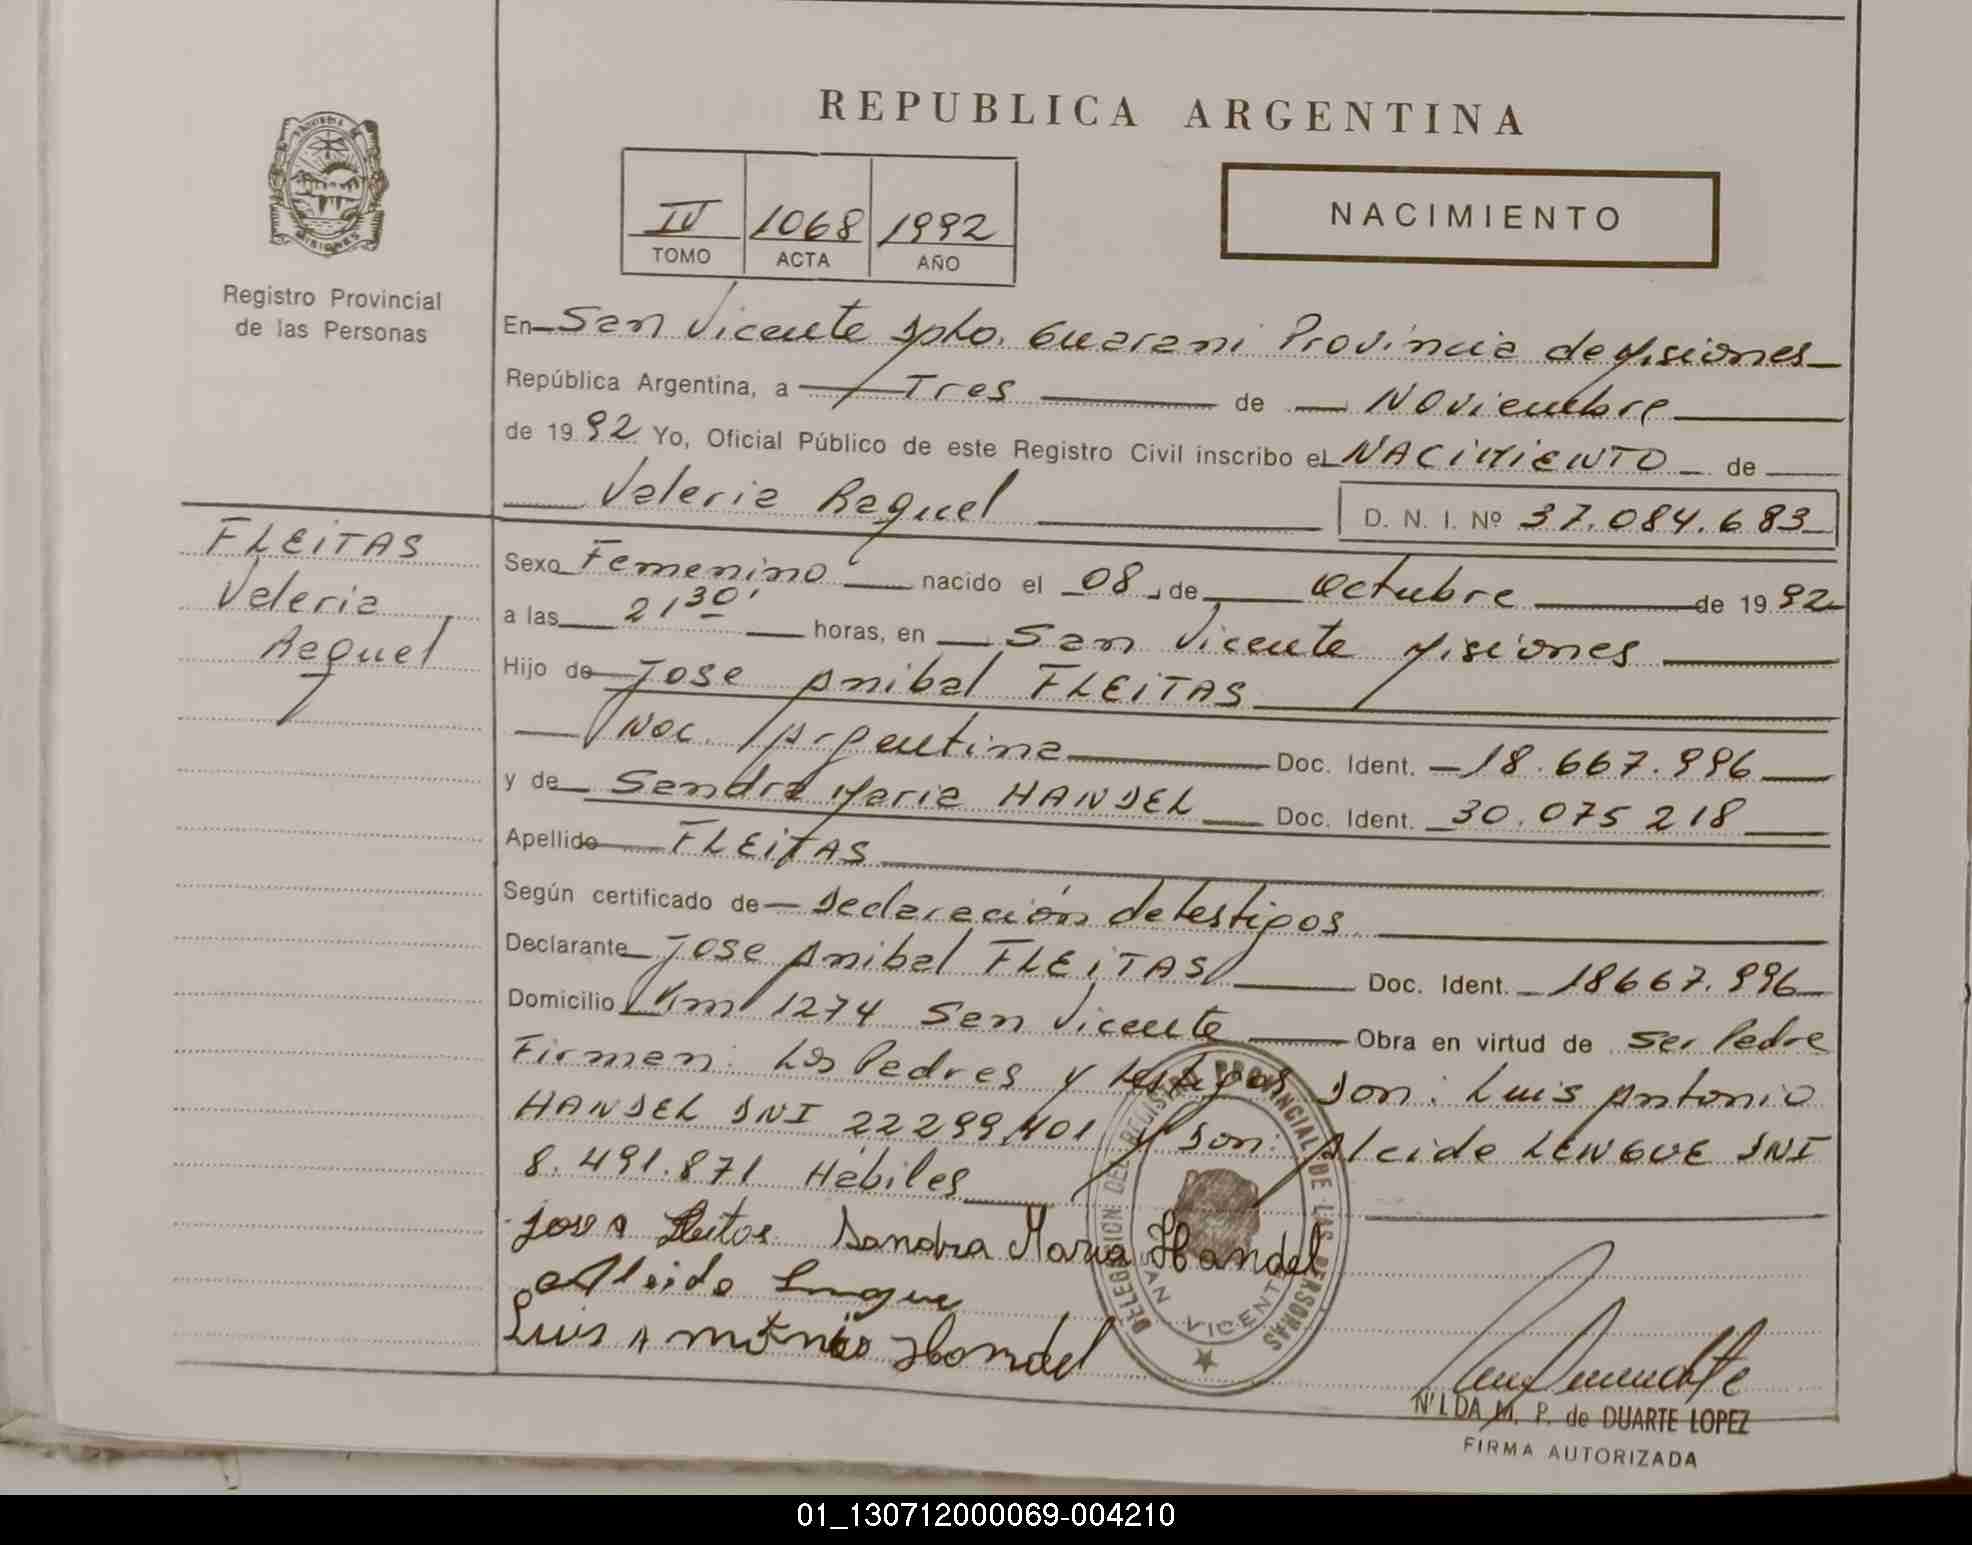 REPUBLICA ARGENTINA
IV 1068 1992
TOMO ACTA AÑO
NACIMIENTO
Registro Provincial
de las Personas
En San Vicente Dpto. Guarani Provincia de Misiones
República Argentina, a Tres de Noviembre
de 1992 Yo, Oficial Público de este Registro Civil inscribo el NACIMIENTO de
Valeria Raquel D. N. I. Nº 37.084.683
FLEITAS
Valeria
Raquel
Sexo Femenino nacido el 08 de Octubre de 1992
a las 21 30' horas, en San Vicente Misiones
Hijo de Jose Anibal FLEITAS
Nac. Argentina Doc. Ident. 18.667.996
y de Sandra Maria HANDEL Doc. Ident. 30.075 218
Apellido FLEITAS
Según certificado de Declaración de testigos
Declarante Jose Anibal FLEITAS Doc. Ident. 18667.996
Domicilio Km 1274 San Vicente Obra en virtud de Ser Padre
Firman: Los Padres y testigos Don: Luis Antonio
HANDEL DNI 22299.401 y Don: Alcido LENGUE DNI
8.491.871 Hábiles
Jose A Fleitas Sandra Maria Handel
Alcido Lengue
Luis Antonio Handel
DELEGACION DEL REGISTRO PROVINCIAL DE LAS PERSONAS
SAN VICENTE
NILDA M. P. de DUARTE LOPEZ
FIRMA AUTORIZADA
01_130712000069-004210